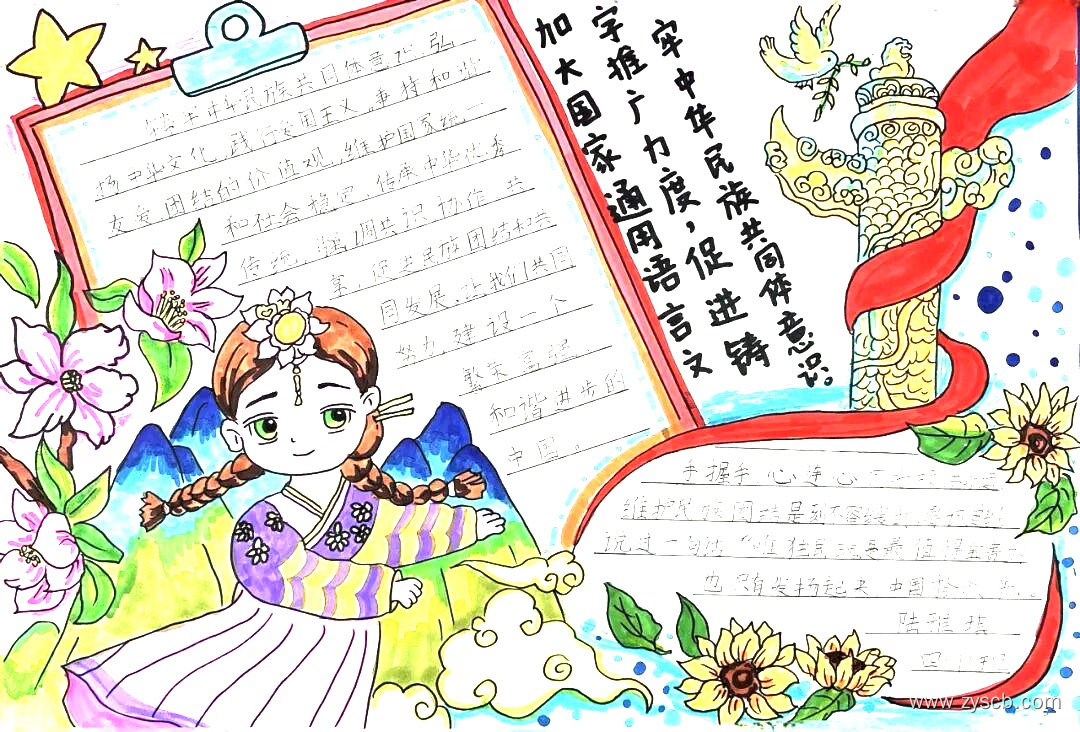 铸牢中华民族共同体意识，弘
扬中华文化，践行爱国主义，秉持和平
友爱、团结的价值观，维护国家统一
和社会稳定，传承中华优秀
传统，强调共识协作，共
享，促进民族团结和共
同发展，让我们共同
努力，建设一个
繁荣富强
和谐进步的
中国。
加大国家通用语言文
字推广力度，促进铸
牢中华民族共同体意识。
手握手 心连心
维护民族团结是
说过一句话“唯
也只有发扬起来 中国
陆雅
四
www.zyscb.com